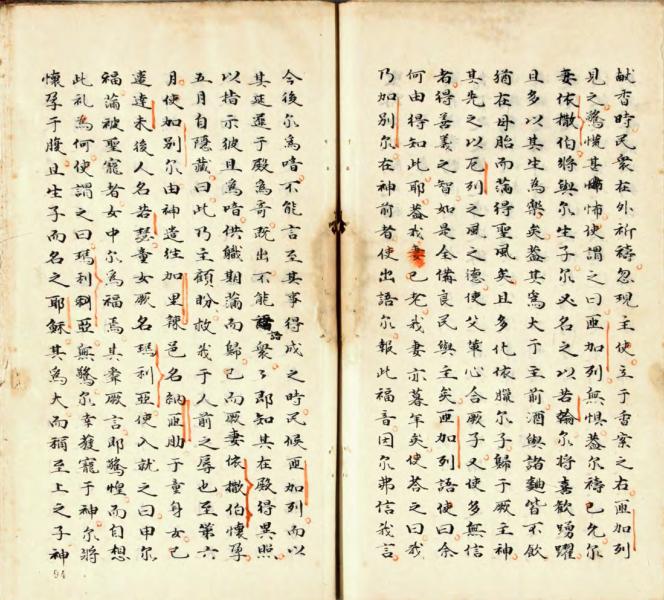 献香時民衆在外祈禱忽現主使立于香案之右匝加列
見之驚慌甚怖使謂之曰匝加列無惧蓋尔禱已允尔
妻依撒伯將與尔生子尔必名之以若翰尔將喜歡踴躍
且多以其生為樂矣蓋其為大于主前酒與諸麯皆不飲
猶在母胎而滿得聖風矣且多化依臘尔子歸于厥主神
其先之以厄列之風之德使父輩心合厥子又使多無信
者得善義之智如是全備良民與主矣匝加列語使曰余
何由得知此耶蓋我妻已老我妻亦暮年矣使荅之曰我
乃加別尔在神前者使出語尔報此福音因尔弗信我言
今後尔為喑不能言至其事得成之時民候匝加列而以
其延遲于殿為奇既出不能語衆々即知其在殿得異照
以指示彼且為喑供職期滿而歸已而厥妻依撒伯懷孕
五月自隱藏曰此乃主顧盼救我于人前之辱也至第六
月使加別尔由神造往加里辣邑名納匝肋于童身女已
達未後人名若瑟童女厥名瑪利亞使入就之曰申尔
福滿被聖寵者女中尔為福焉其聽厥言即驚惶而自想
此礼為何使謂之曰瑪利亞無驚尔幸獲寵于神尔將
懷孕于腹且生子而名之耶穌其為大而稱至上之子神
94